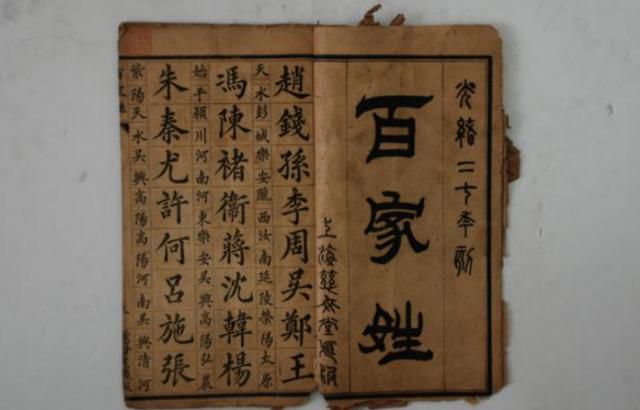 光緒二七年刻
百家姓
上海堂
趙錢孫李周吳鄭王
天水彭城樂安隴西汝南延陵滎陽太原
馮陳褚衛蔣沈韓楊
始平潁川河南河東樂安吳興高陽弘農
朱秦尤許何呂施張
紫陽天水吳興高陽高陽河南吳興清河